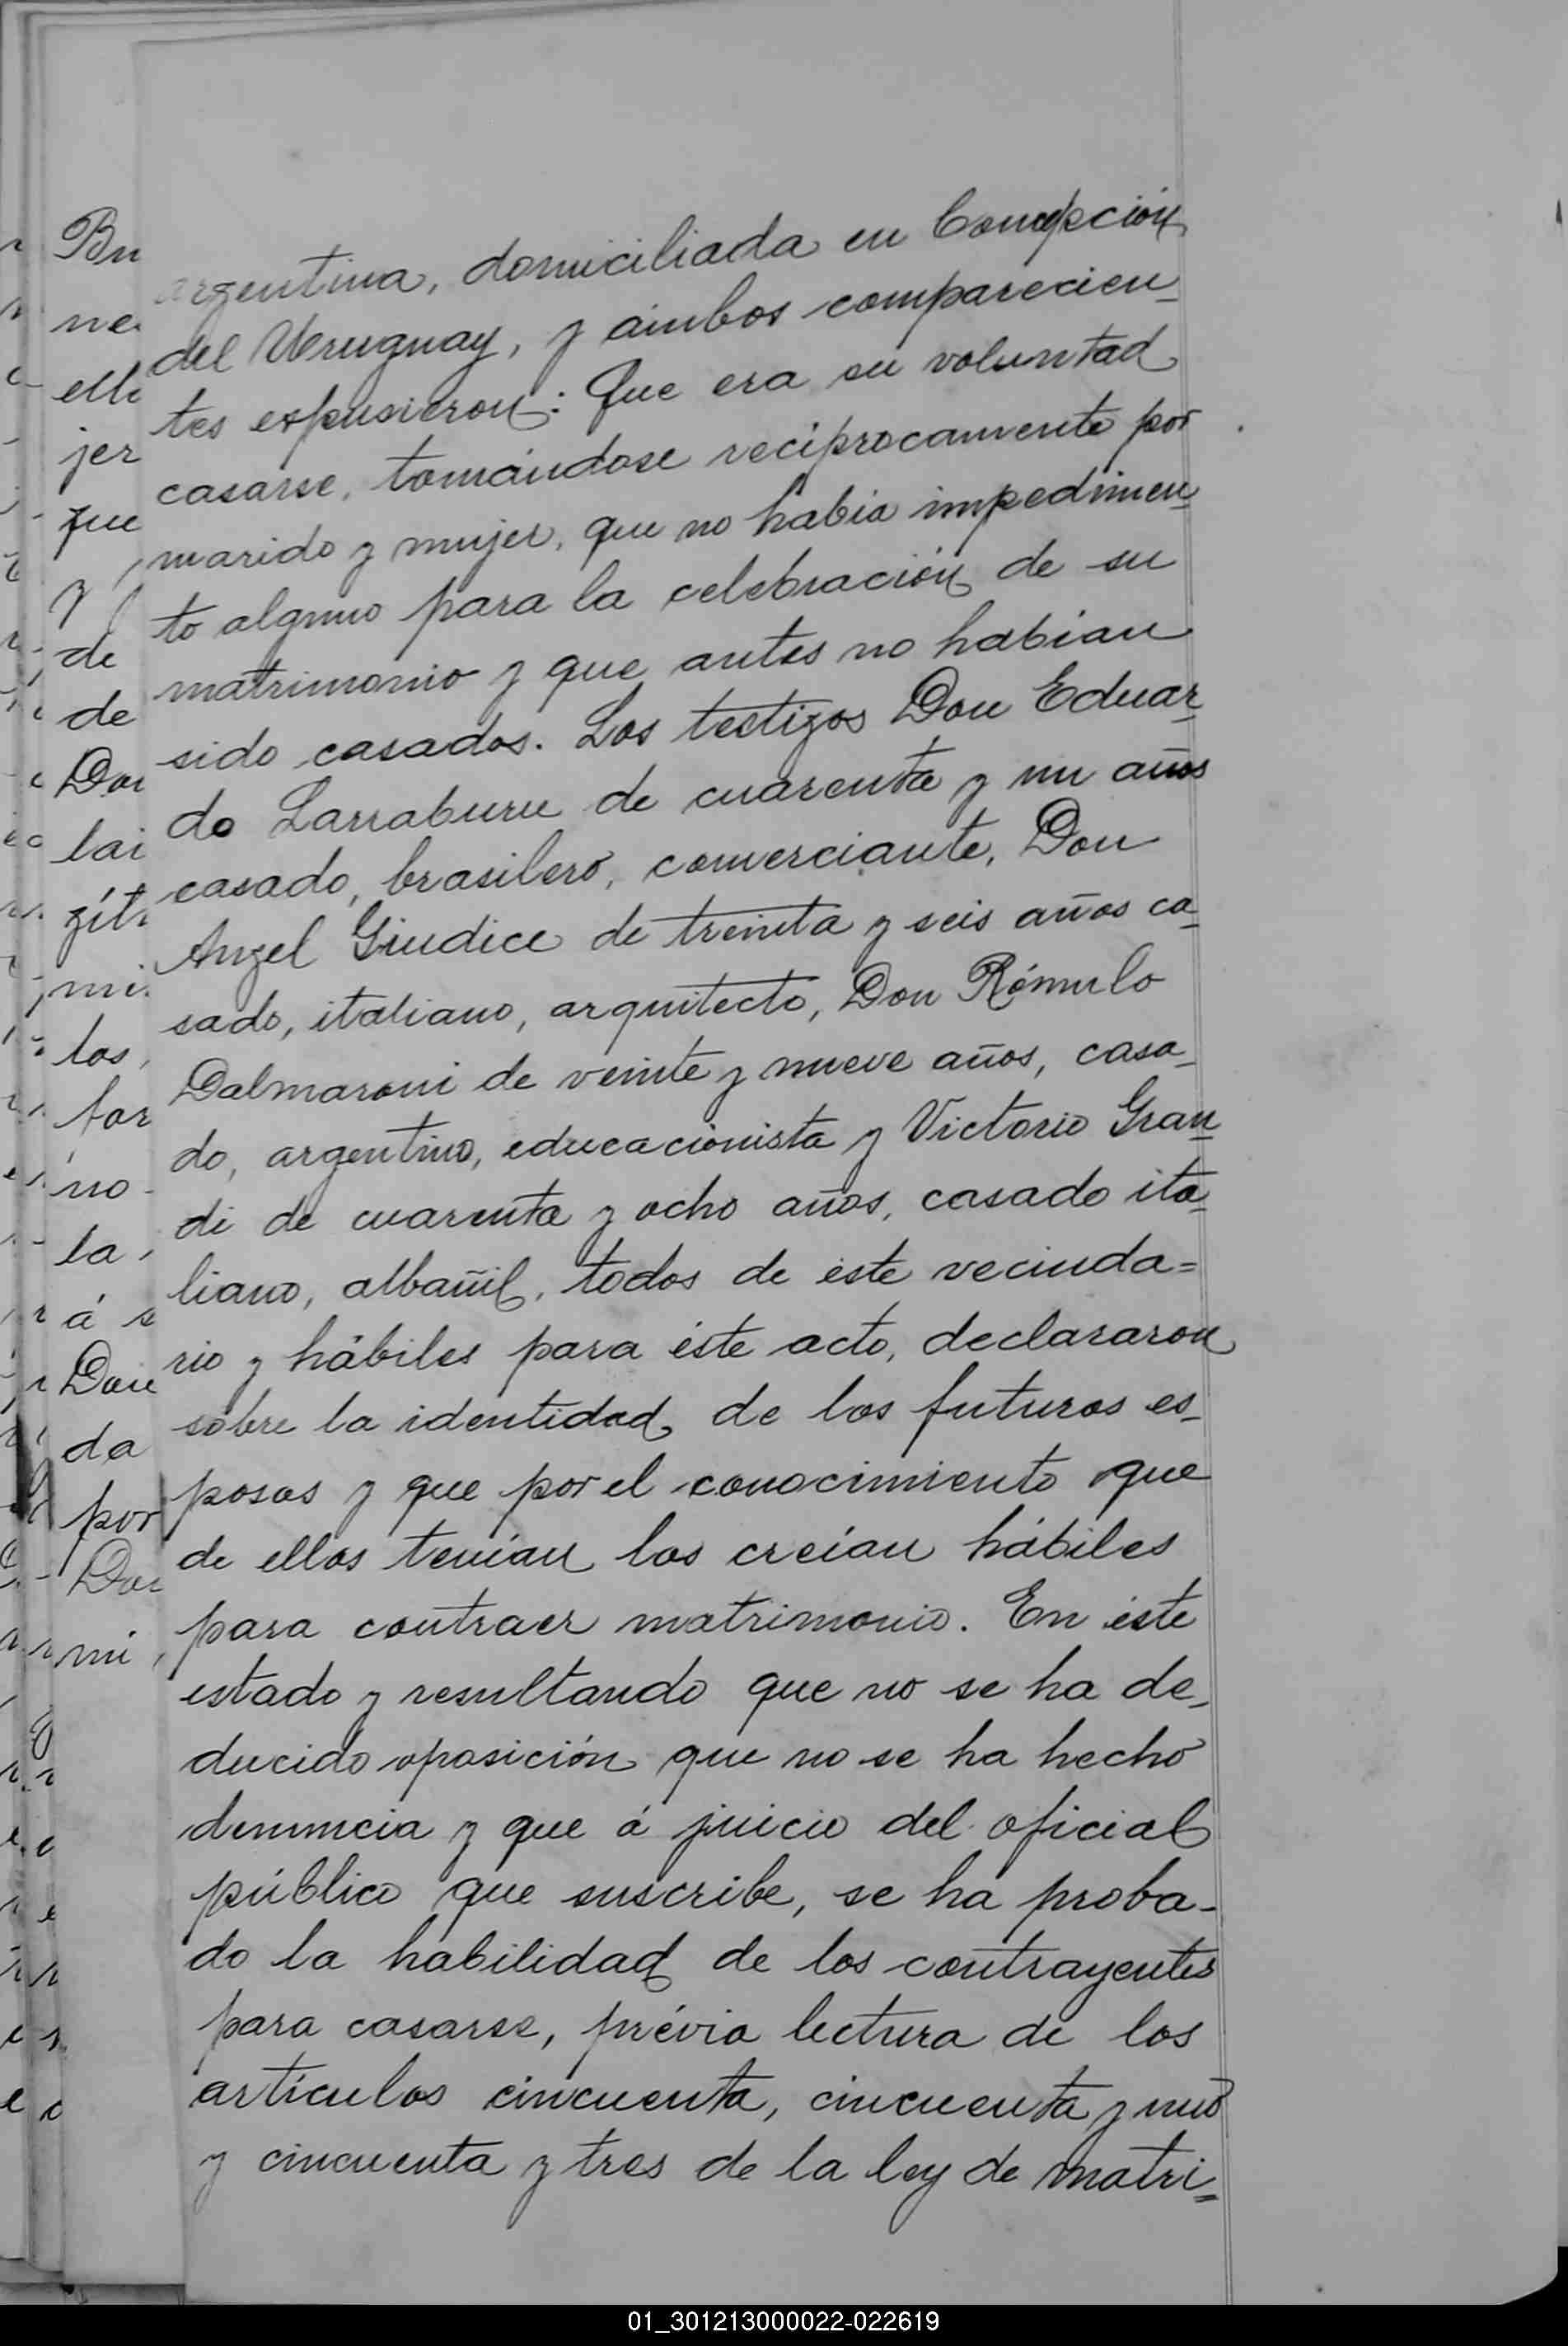 argentina, domiciliada en Concepción
del Uruguay, y ámbos comparecien_
tes expusieron: Que era su voluntad
casarse, tomándose recíprocamente por
marido y mujer, que no habia impedimen_
to alguno para la celebración de su
matrimonio y que antes no habian
sido casados. Los testigos Don Eduar_
do Larraburu de cuarenta y un años
casado, brasilero, comerciante, Don
Angel Giudice de treinta y seis años ca_
sado, italiano, arquitecto, Don Rómulo
Dalmaroni de veinte y nueve años, casa_
do, argentino, educacionista y Victorio Gran_
di de cuarenta y ocho años, casado ita_
liano, albañil, todos de este vecinda=
rio y hábiles para éste acto, declararon
sobre la identidad de los futuros es_
posos y que por el conocimiento que
de ellos tenían los creían hábiles
para contraer matrimonio. En éste
estado y resultando que no se ha de_
ducido oposición que no se ha hecho
denuncia y que á juicio del oficial
público que suscribe, se ha proba-
do la habilidad de los contrayentes
para casarse, prévia lectura de los
artículos cincuenta, cincuenta y uno
y cincuenta y tres de la ley de matri=
01_301213000022-022619